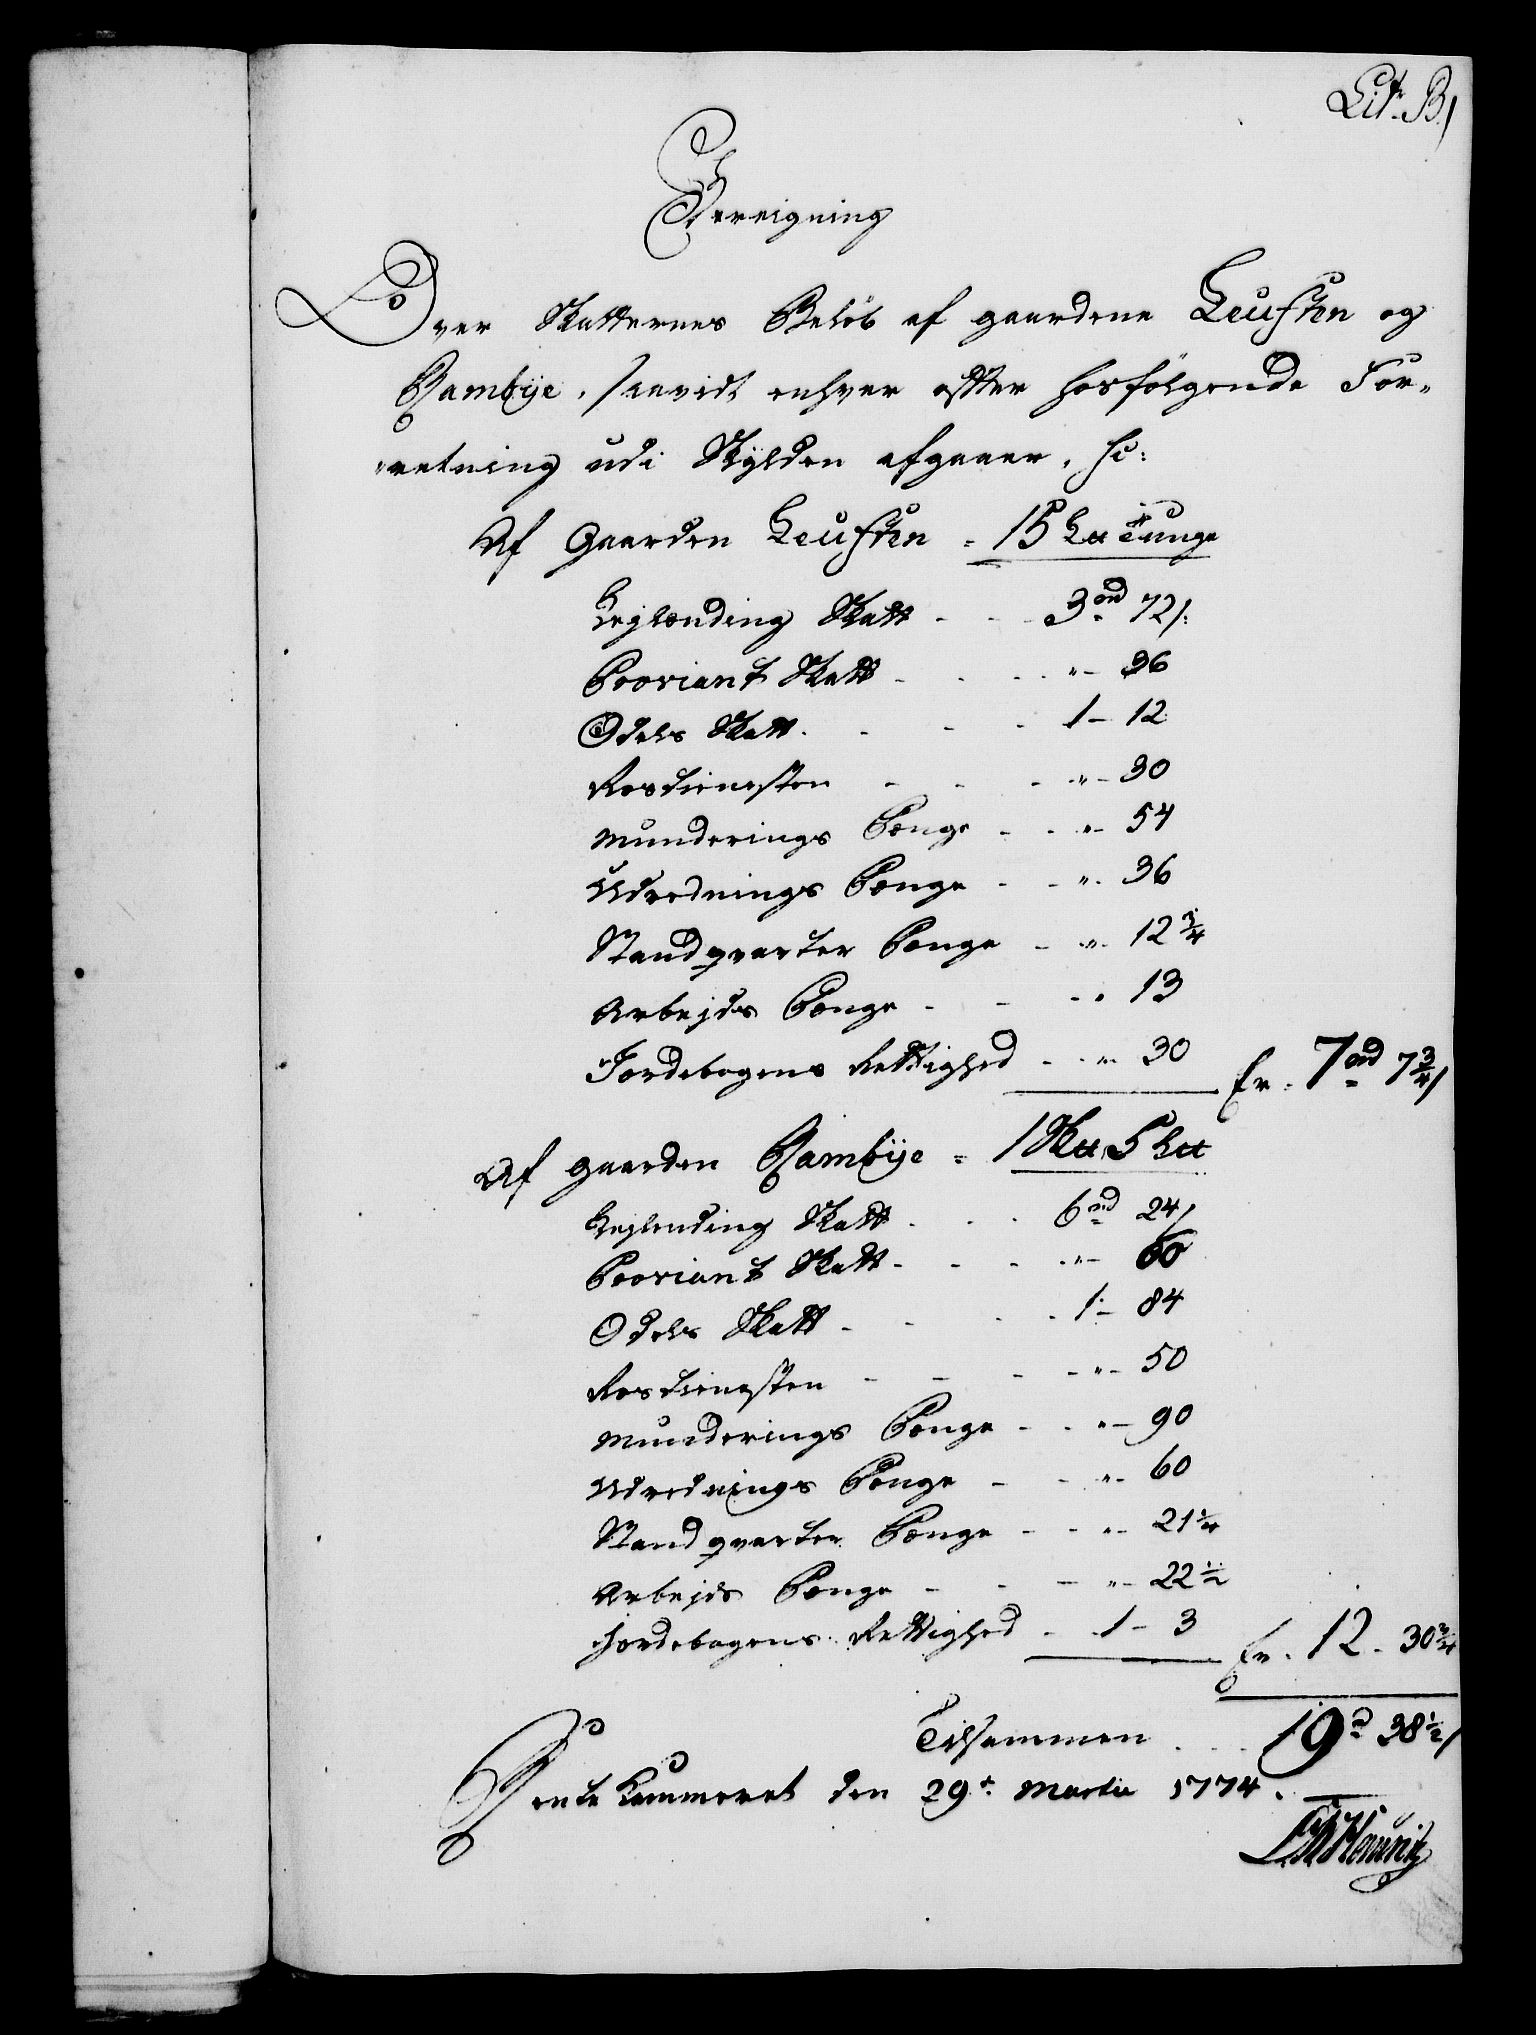 Litr. B/
Beregning
Over Skatternes Beløb af gaardene Leuften og
Rambÿe, saavidt enhver efter hosfølgende For-
retning udi Skÿlden afgaaer, Sc:
Af Gaarden Leuften = 15 L℔ Tunge
Leylending Skatt - - 3 rd 72 s:
Proviant Skatt - - - " - 36
Odels Skatt - - - 1 - 12
Rostienesten - - - " - 30
Munderings Penge - - " - 54
Udrednings Penge - - " - 36
Standqvarter Penge - " - 12 3/4
Arbejds Penge - - - " 13
Jordebogens Rettighed - - " - 30 Er = 7 rd 7 3/4 s
Af gaarden Rambÿe = 1 Sk℔ 5 L℔
Leylending Skatt - - - 6 rd 24 s
Proviant Skatt - - - " - 60
Odels Skatt - - - 1 - 84
Rostienesten - - - " - 50
Munderings Penge - - " - 90
Udrednings Penge - - " - 60
Standqvarter Penge - - " - 21 1/4
Arbejds Penge - - - " - 22 1/2
Jordebogens Rettighed - - 1 - 3 Er - 12 - 30 3/4
Tilsammen - - - 19 rd 38 1/2 s
Rente Kammeret den 29de Martii 1774.